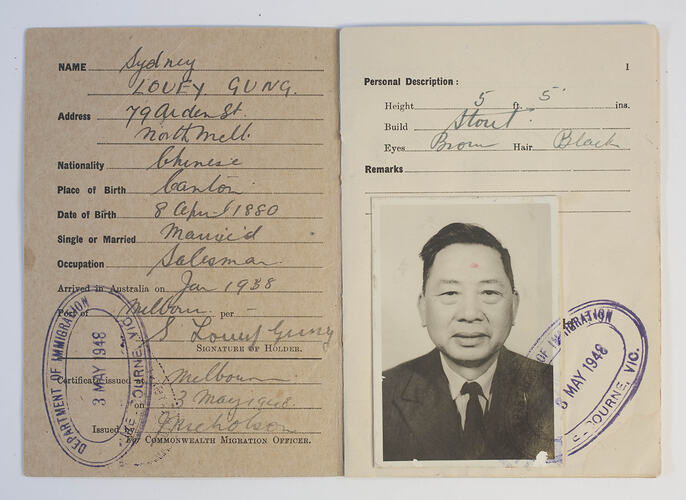 NAME Sydney
LOUEY GUNG.
Address 79 Arden St.
North Melb.
Nationality Chinese
Place of Birth Canton
Date of Birth 8 April 1880
Single or Married Married
Occupation Salesman
Arrived in Australia on Jan 1938
Port of Melbourn per —
S Louey Gung
SIGNATURE OF HOLDER.
Certificate issued at Melbourn
on 3 May 1948.
Issued by Nicholson
For COMMONWEALTH MIGRATION OFFICER.
DEPARTMENT OF IMMIGRATION
3 MAY 1948
MELBOURNE, VIC.
1
Personal Description:
Height 5 ft. 5 ins.
Build Stout
Eyes Brown Hair Black
Remarks
OF IMMIGRATION
3 MAY 1948
MELBOURNE, VIC.